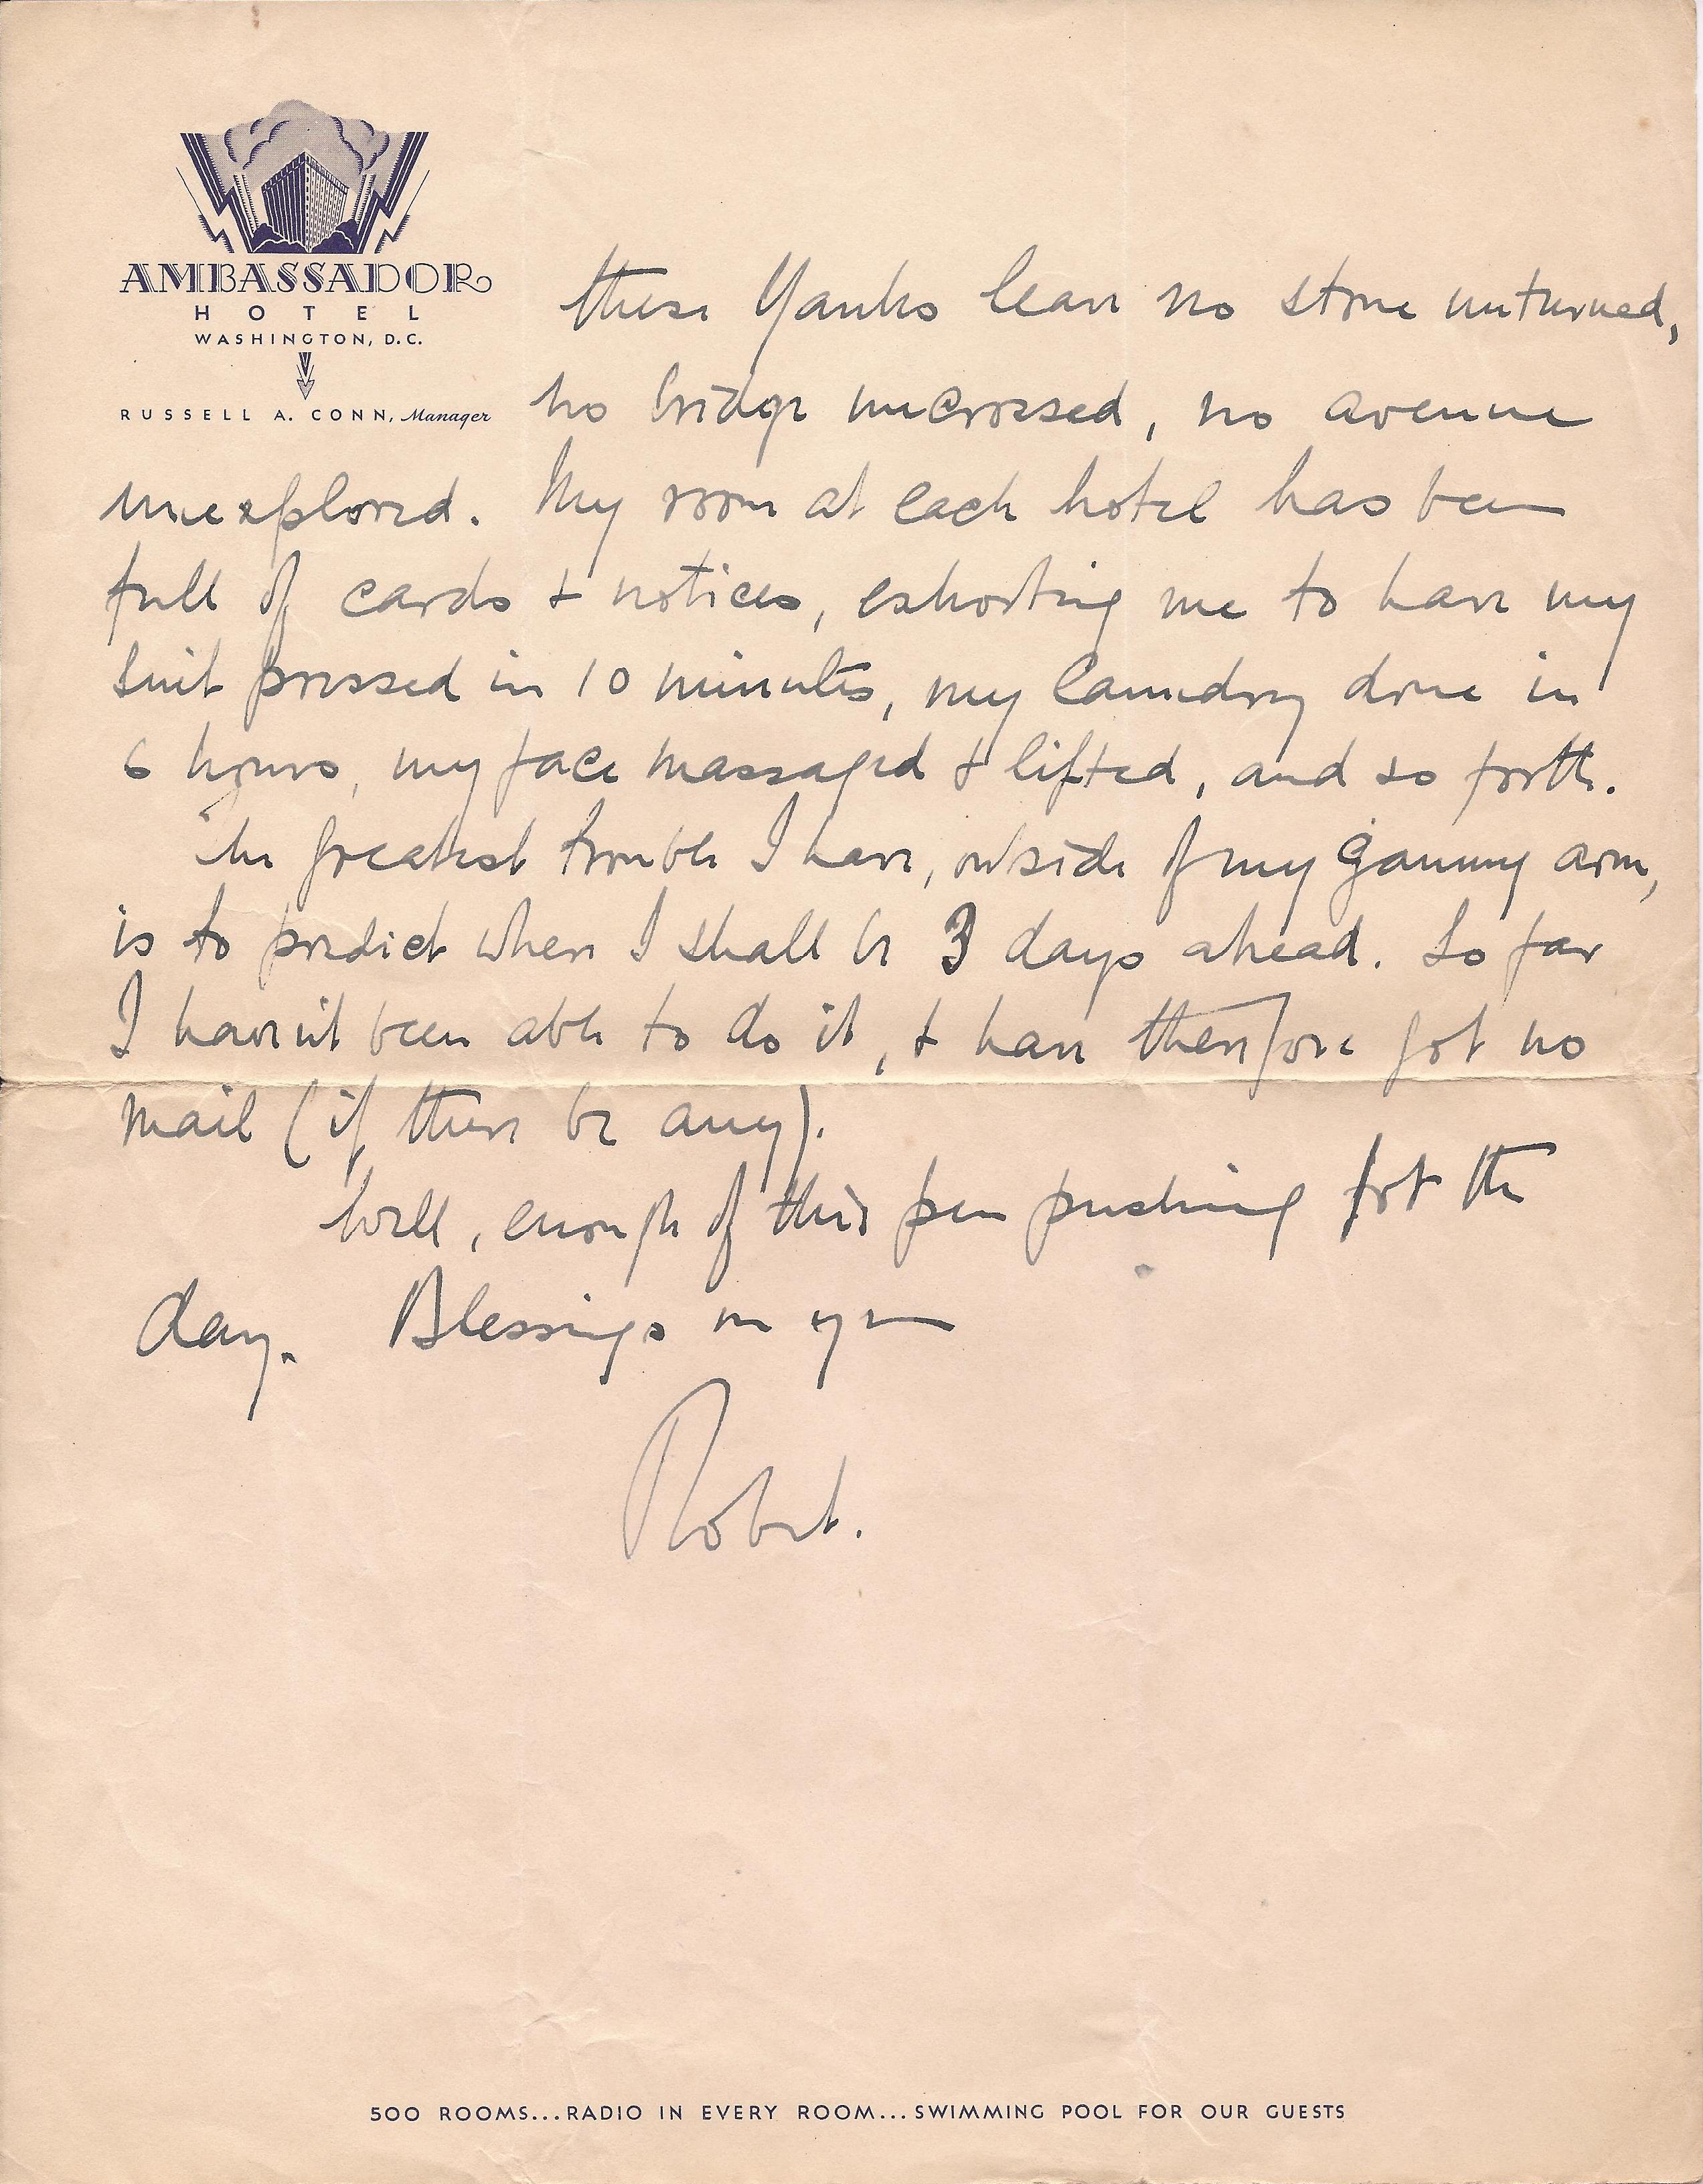 AMBASSADOR
HOTEL
WASHINGTON, D.C.
RUSSELL A. CONN, Manager
these Yanks leave no stone unturned,
no bridge uncrossed, no avenue
unexplored. My room at each hotel has been
full of cards & notices, exhorting me to have my
suit pressed in 10 minutes, my laundry done in
6 hours, my face massaged & lifted, and so forth.
The greatest trouble I have, outside of my gammy arm,
is to predict where I shall be 3 days ahead. So far
I haven't been able to do it, & have therefore got no
mail (if there be any).
Well, enough of this pen pushing for the
day. Blessings on you
Robert.
500 ROOMS...RADIO IN EVERY ROOM...SWIMMING POOL FOR OUR GUESTS